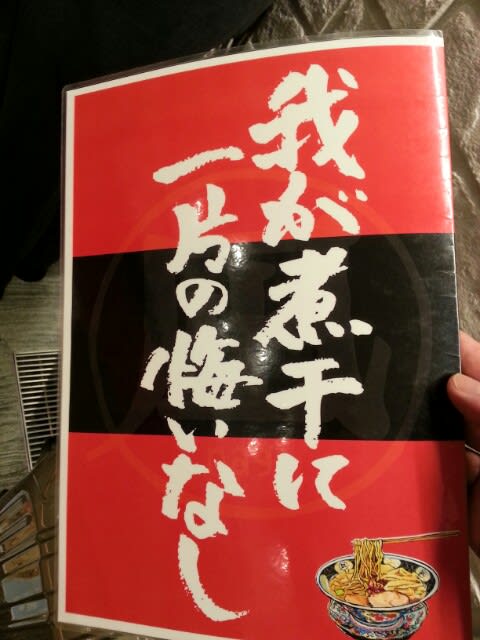 我が煮干に
一片の悔いなし